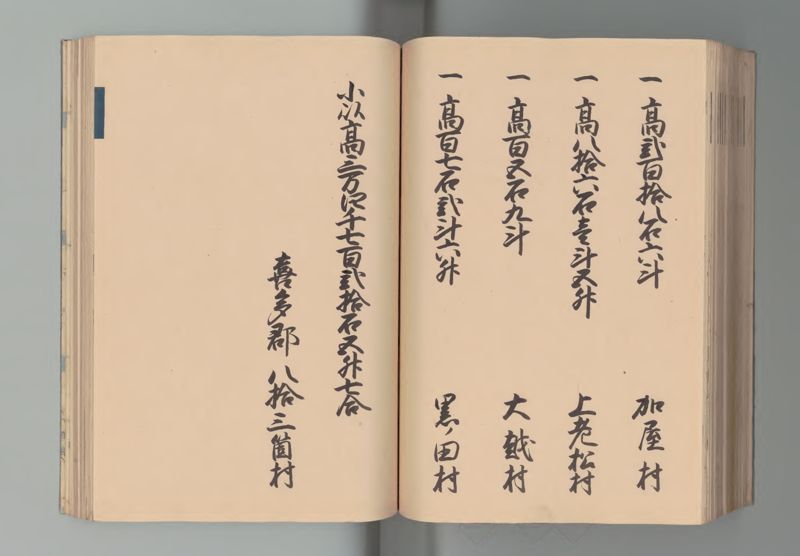 一 高弐百拾八石六斗 加屋村
一 高八拾六石壱斗五升 上老松村
一 高百五石九斗 大越村
一 高百七石弐斗六升 黒ノ田村
小以高三万四千七百弐拾石五升七合
喜多郡 八拾三箇村